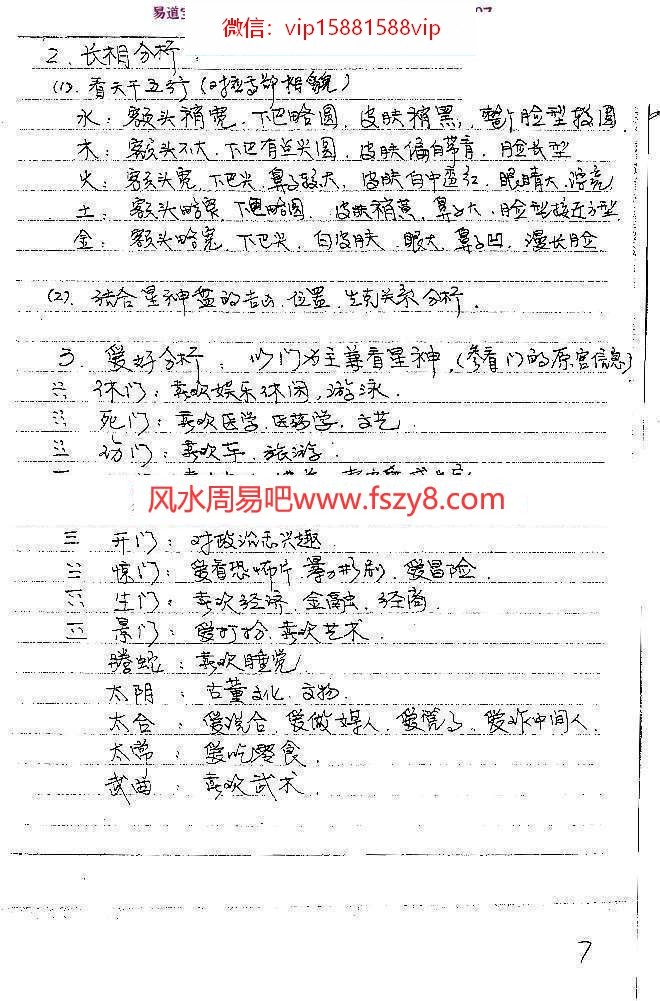 易道
微信：vip15881588vip
2、长相分析：
(1)、看天干五行（时干部相貌）
水：额头稍宽、下巴略圆、皮肤稍黑，整个脸型较圆
木：额头不大、下巴有些尖圆、皮肤偏白带青、脸长型
火：额头宽、下巴尖、鼻子较大、皮肤白中透红、眼睛大、漂亮
土：额头略宽、下巴略圆、皮肤稍黄、鼻子大、脸型接近方型
金：额头略宽、下巴尖、白皮肤、眼大、鼻子凹、漫长脸
(2)、结合星神盘的吉凶、位置、生克关系分析、
3、爱好分析：以门为主兼看星神、（参看门的原宫信息）
☵ 休门：喜欢娱乐休闲，游泳．
☷ 死门：喜欢医学、医药学、文艺．
伤门：喜欢车、旅游．
风水周易吧www.fszy8.com
☰ 开门：对政治感兴趣
惊门：爱看恐怖片、暴力形剧、爱冒险．
生门：喜欢经济、金融、经商
景门：爱打扮、喜欢艺术．
螣蛇：喜欢睡觉
太阴：古董文化、文物．
六合：爱混合、爱做媒人、爱凭了、爱作中间人．
太常：爱吃零食．
武曲：喜欢武术．
7